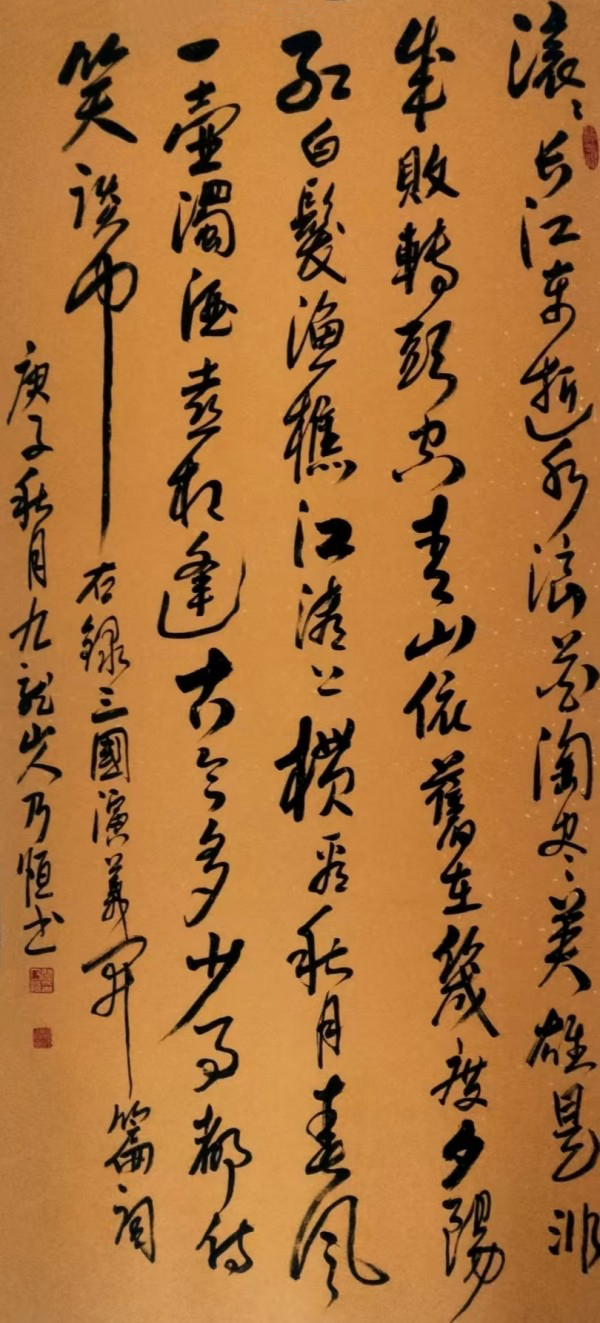 滚〻长江东逝水浪花淘尽英雄是非
成敗轉頭空青山依舊在幾度夕陽
紅白髮漁樵江渚上慣看秋月春風
一壺濁酒喜相逢古今多少事都付
笑談中
右録三國演義開篇詞
庚子秋月九龍山人乃恒书